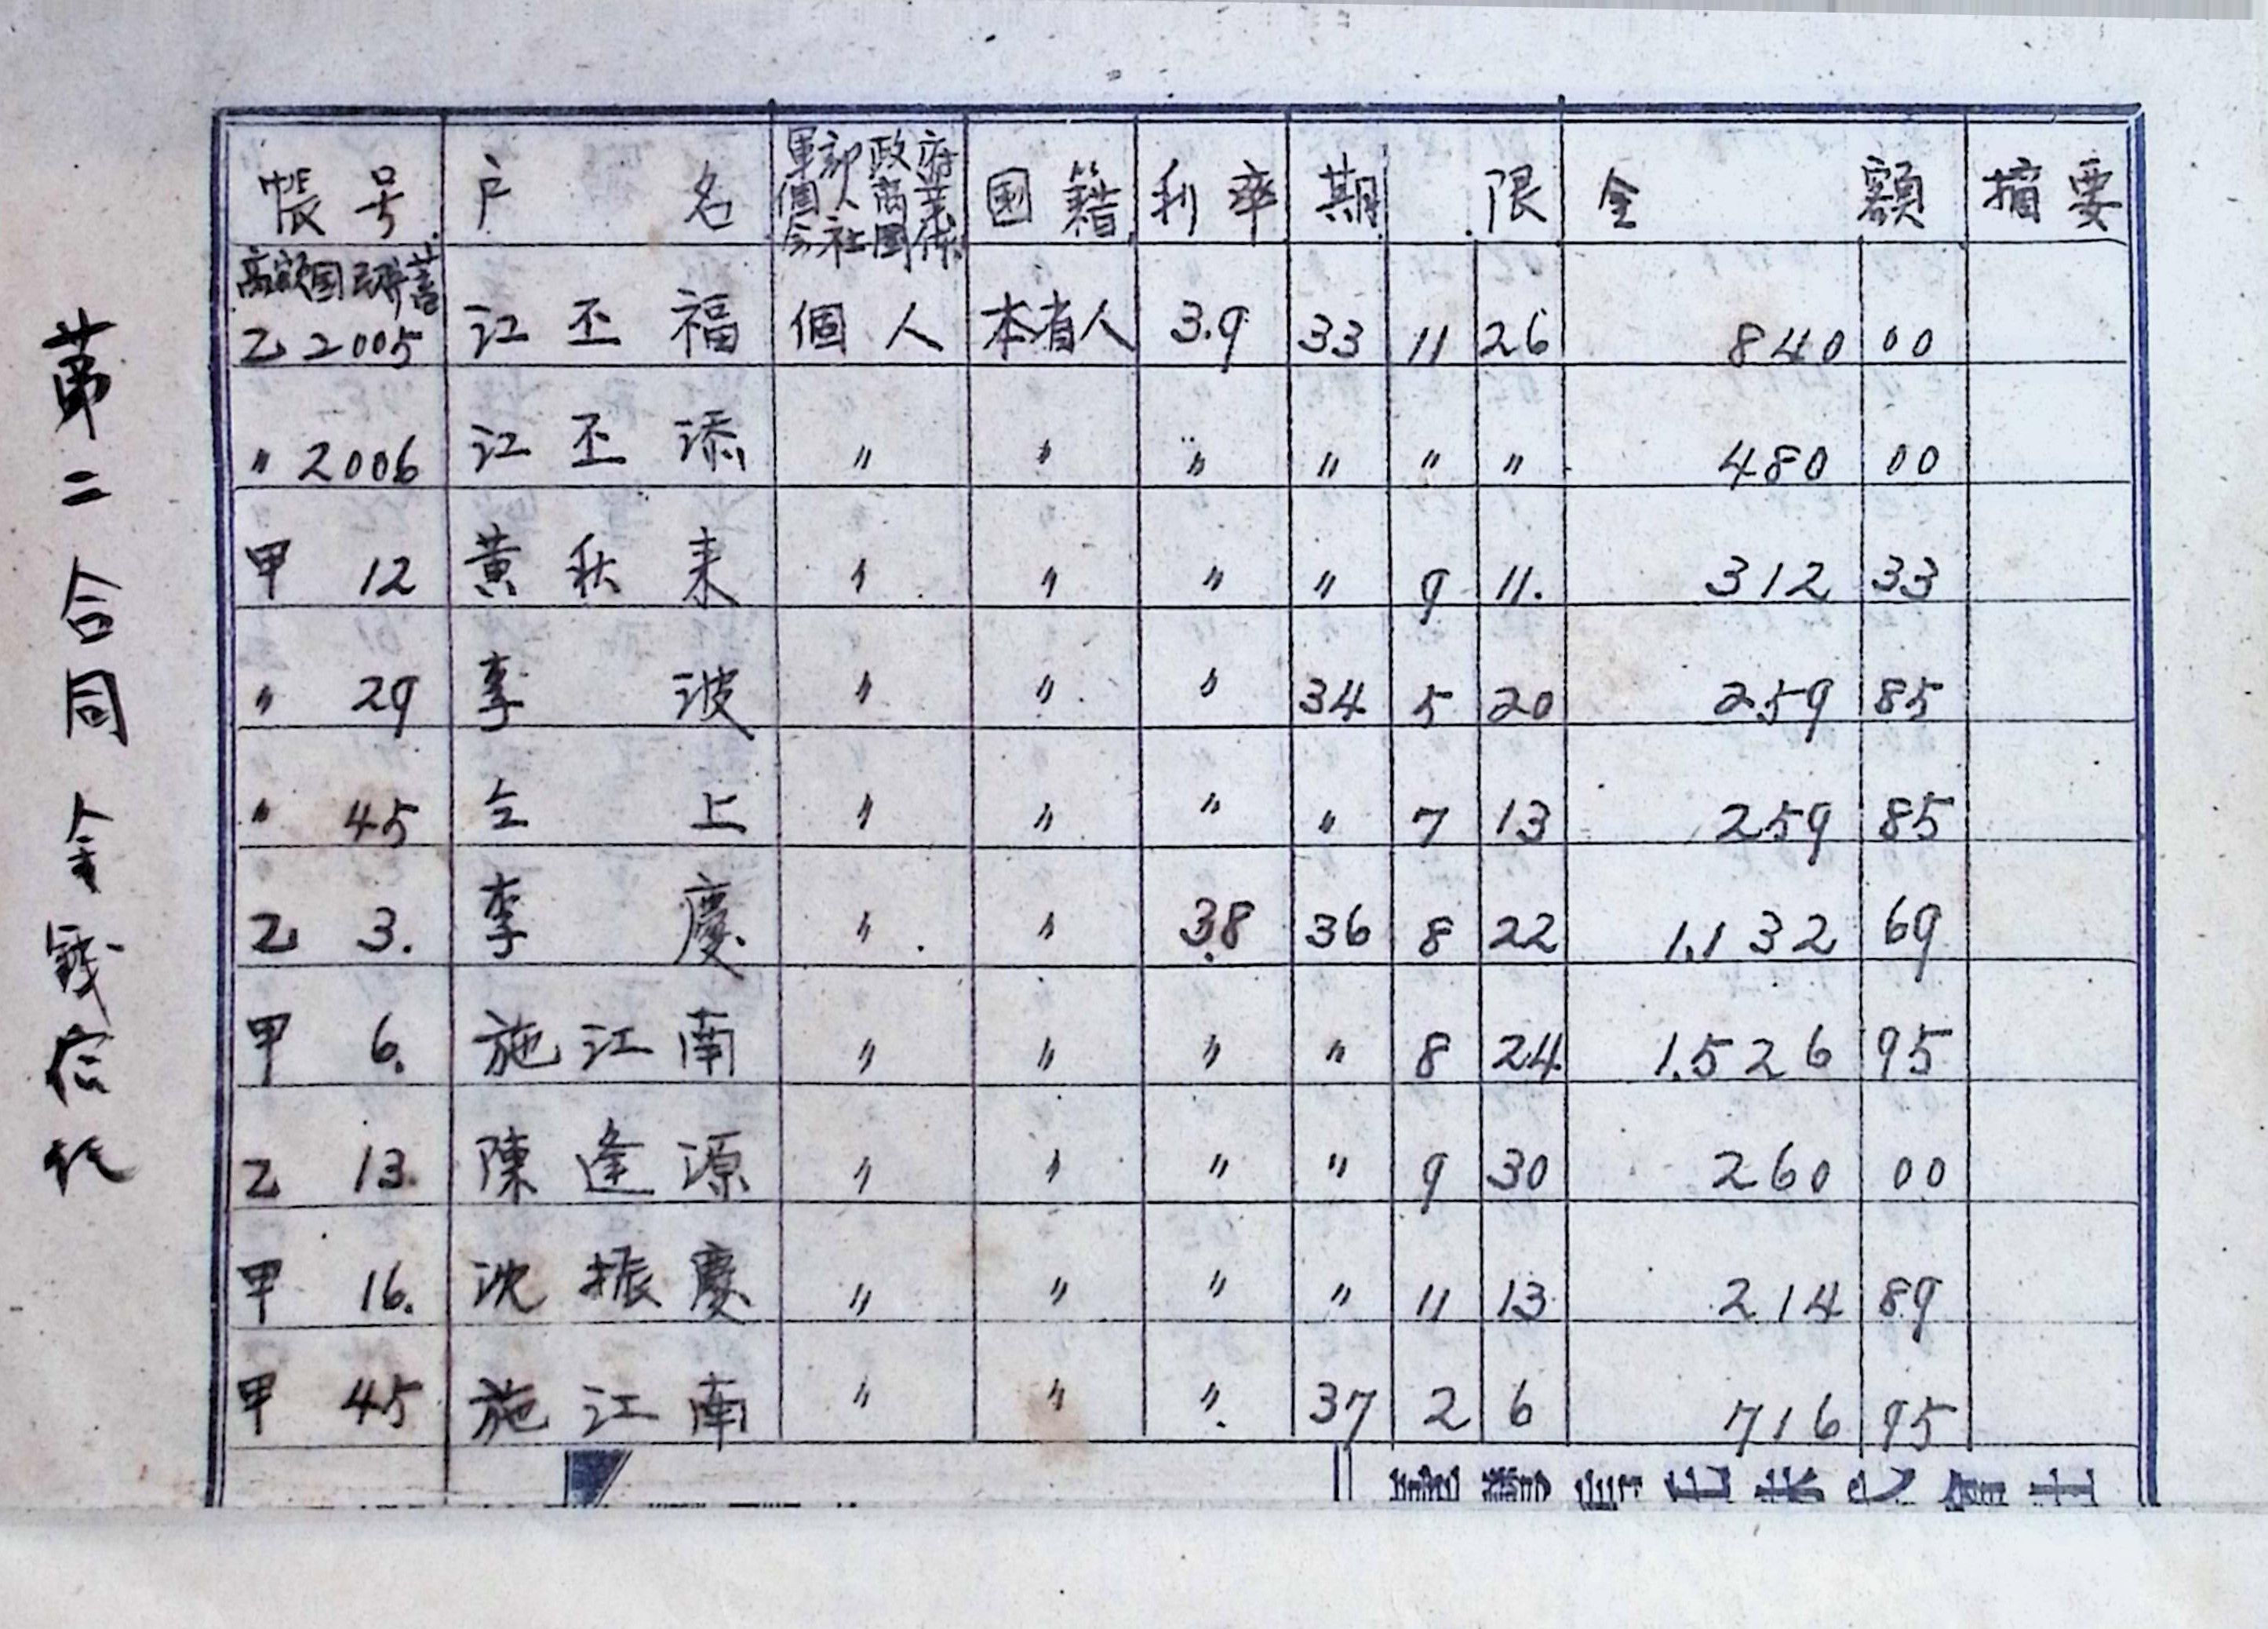 第二合同金錢信託
帳号 户名 軍部政府個人商業会社團体 国籍 利率 期限 金額 摘要
高砂国民貯蓄
乙2005 江丕福 個人 本省人 3.9 33 11 26 840 00
〃2006 江丕添 〃 〃 〃 〃 〃 〃 480 00
甲 12 黄秋来 〃 〃 〃 〃 9 11. 312 33
〃 29 李波 〃 〃 〃 34 5 20 259 85
〃 45 仝上 〃 〃 〃 〃 7 13 259 85
乙 3. 李慶 〃 〃 3.8 36 8 22 1.132 69
甲 6. 施江南 〃 〃 〃 〃 8 24 1.526 95
乙 13. 陳逢源 〃 〃 〃 〃 9 30 260 00
甲 16. 沈振慶 〃 〃 〃 〃 11 13 214 89
甲 45 施江南 〃 〃 〃 37 2 6 716 95